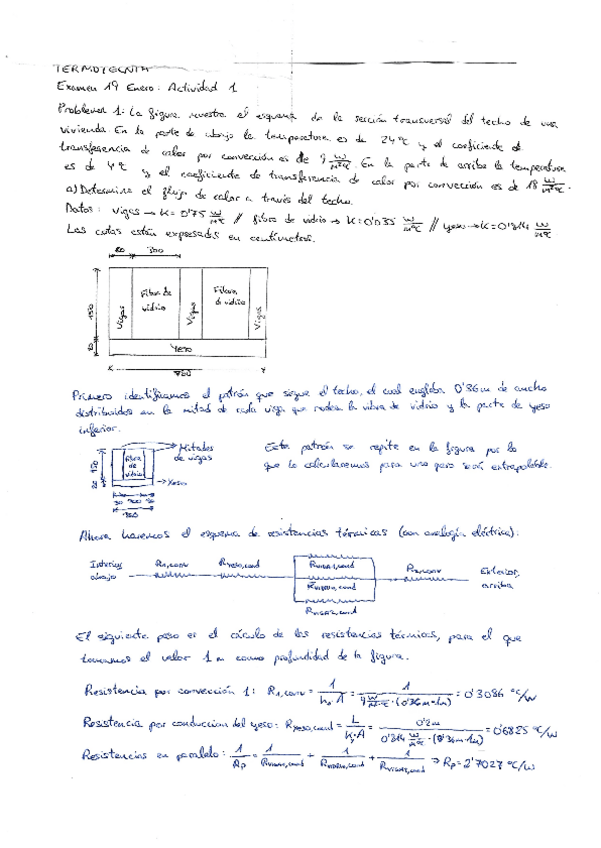 TERMOTECNIA
Examen 19 Enero: Actividad 1
Problema 1: La figura muestra el esquema de la sección transversal del techo de una
vivienda. En la parte de abajo la temperatura es de 24 ºC y el coeficiente de
transferencia de calor por convección es de 9 W/m²ºC. En la parte de arriba la temperatura
es de 4 ºC y el coeficiente de transferencia de calor por convección es de 18 W/m²ºC.
a) Determina el flujo de calor a través del techo.
Datos: Vigas → K = 0'75 W/mºC // fibra de vidrio → K = 0'035 W/mºC // yeso → K = 0'814 W/mºC
Las cotas están expresadas en centímetros.
Vigas
Fibra de vidrio
Vigas
Fibra de vidrio
Vigas
Yeso
Primero identificamos el patrón que sigue el techo, el cual engloba 0'36 m de ancho
distribuidos en la mitad de cada viga que rodea la vibra de vidrio y la parte de yeso
inferior.
Mitades
de vigas
Fibra
de
vidrio
Yeso
Este patrón se repite en la figura por lo
que lo calcularemos para uno pero será extrapolable.
Ahora haremos el esquema de resistencias térmicas (con analogía eléctrica):
Interior, abajo
R1,conv
Ryeso,cond
Exterior, arriba
El siguiente paso es el cálculo de las resistencias térmicas, para el que
tomamos el valor 1 m como profundidad de la figura.
Resistencia por convección 1: R1,conv = 1/(h1·A) = 1/(9 W/m²ºC · (0'36m·1m)) = 0'3086 ºC/W
Resistencia por conducción del yeso: Ryeso,cond = L/(K·A) = 0'2m/(0'814 W/mºC · (0'36m·1m)) = 0'6825 ºC/W
Resistencias en paralelo: 1/Rp = ⇒ Rp = 2'7027 ºC/W